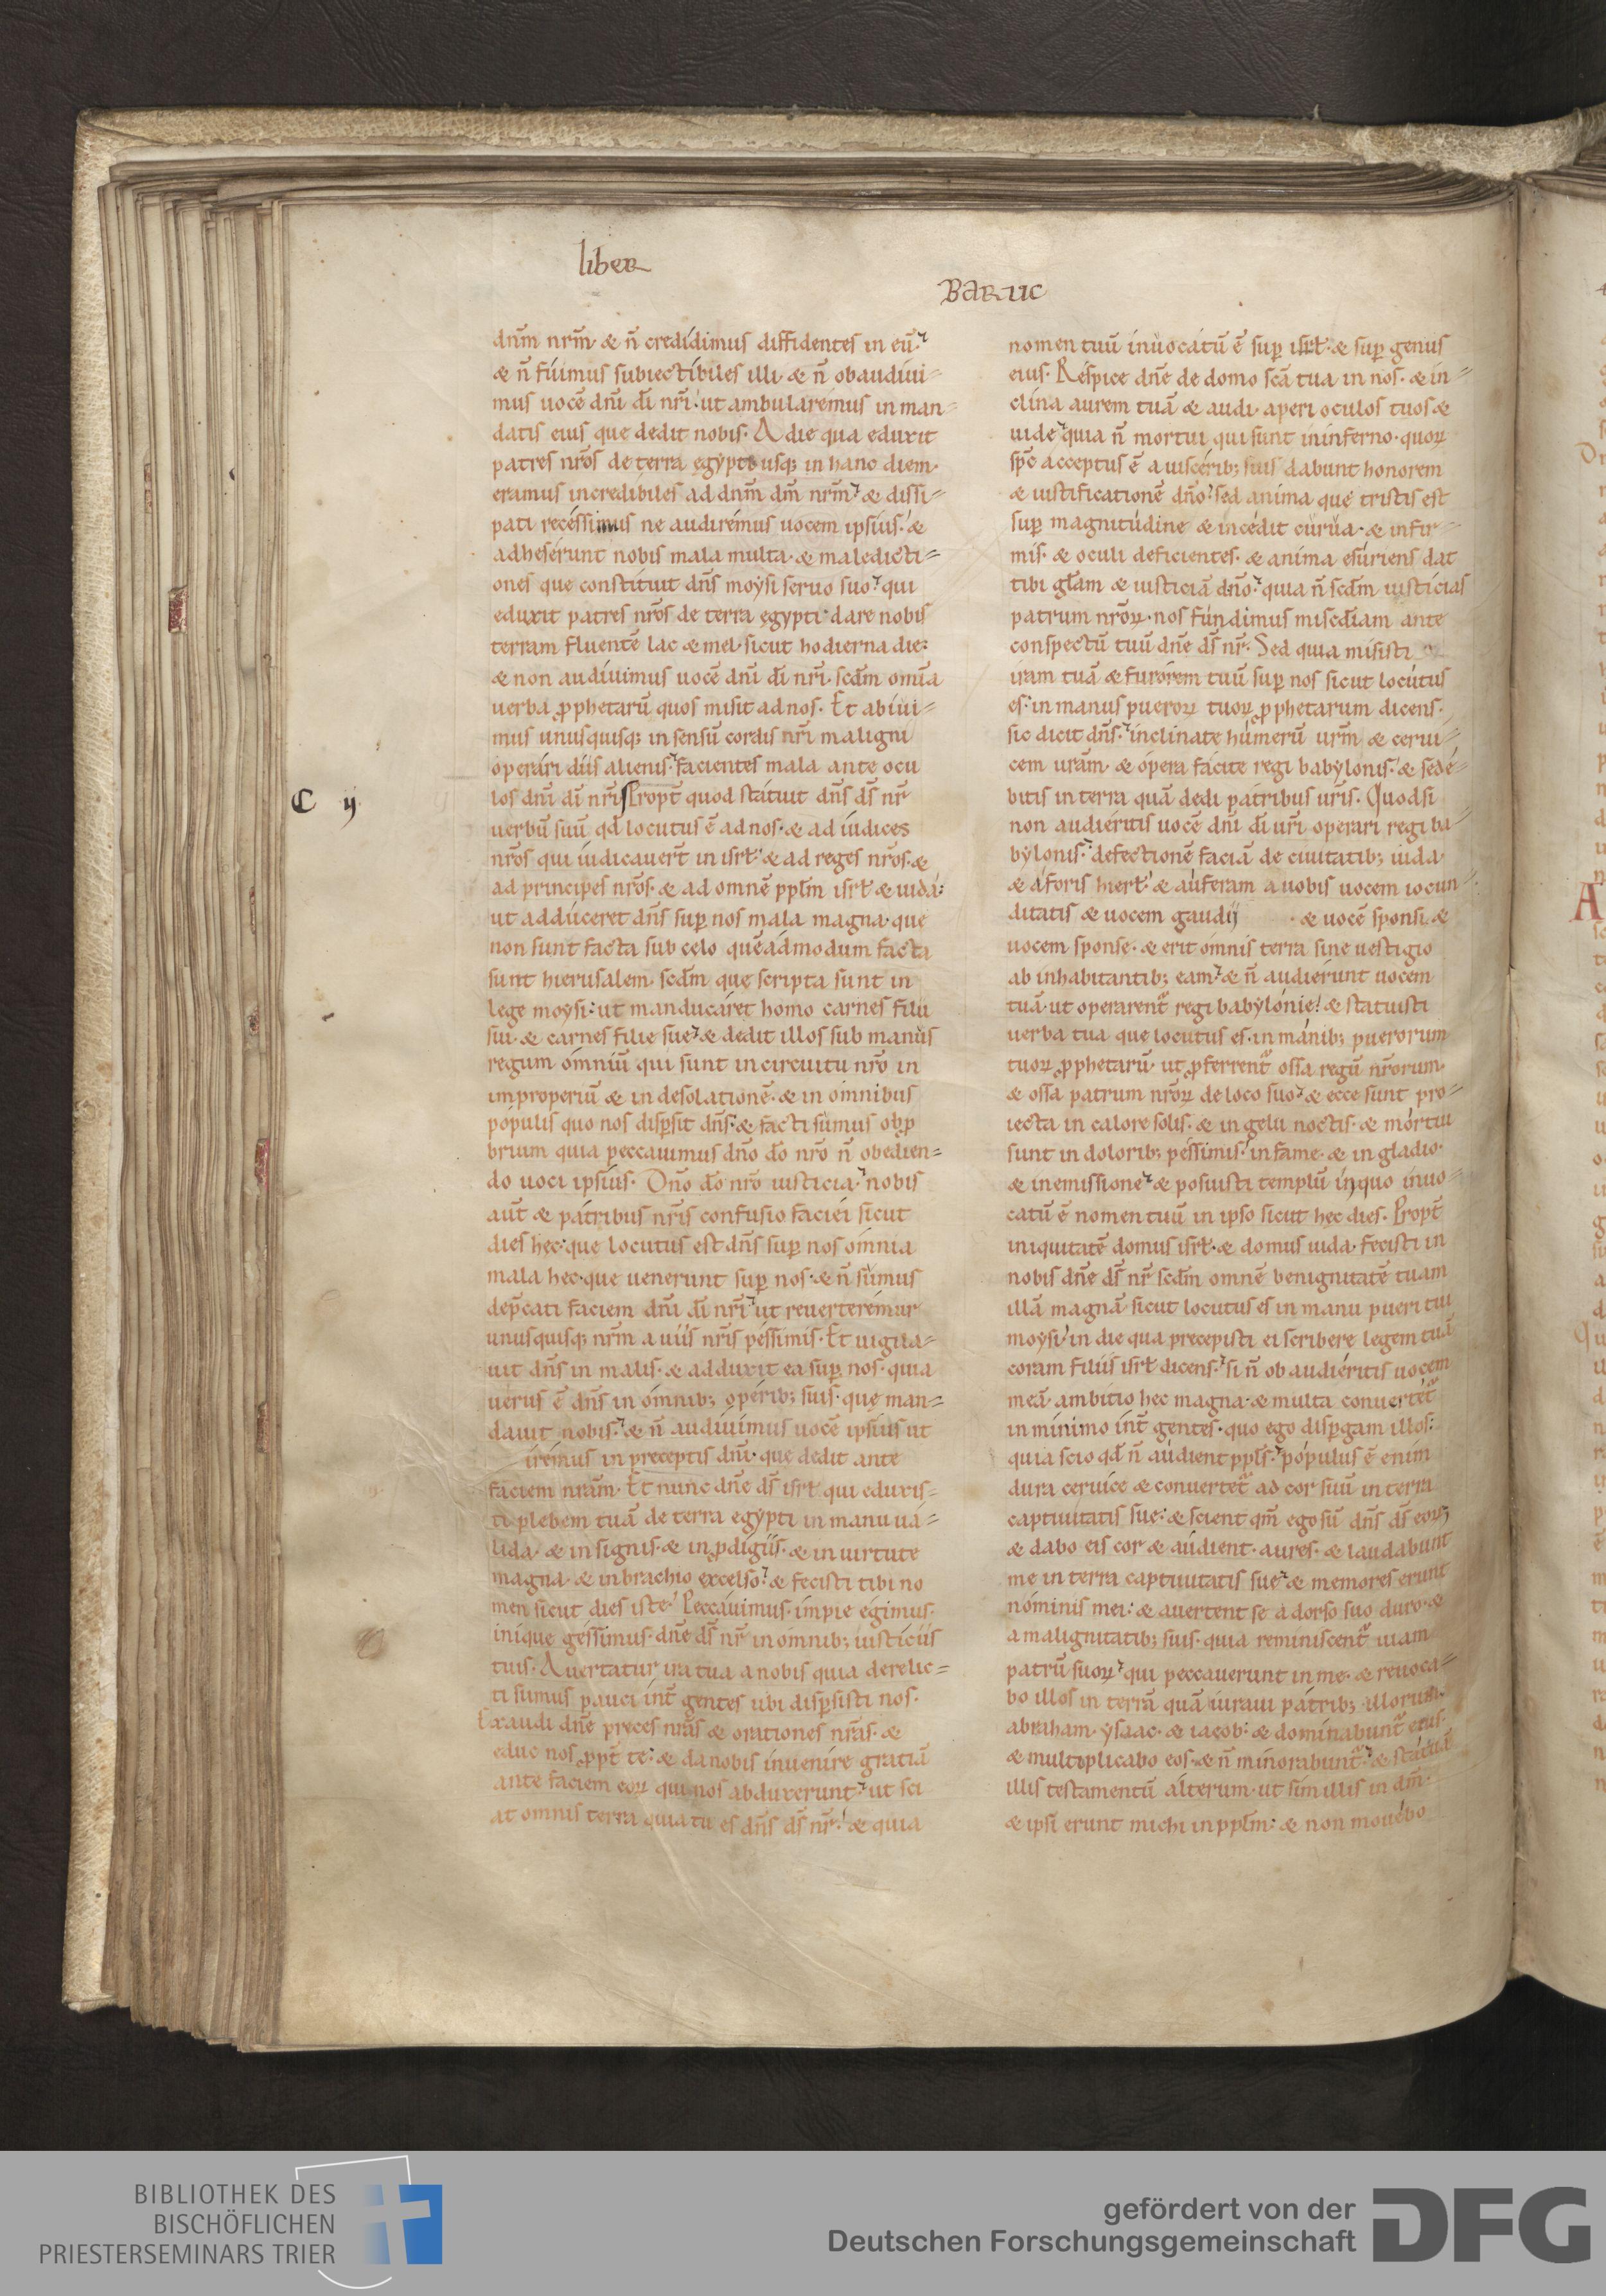 liber
BARUC
dnm̄ nrm̄ & n̄ credidimus diffidentes in eū.
& n̄ fuimus subiectibiles illi. & n̄ obaudiui-
mus uocē dnī dī nrī. ut ambularemus in man-
datis eius que dedit nobis. A die qua eduxit
patres nrōs de terra egypti usq; in hanc diem.
eramus incredibiles ad dnm̄ dm̄ nrm̄. & dissi-
pati recessimus ne audiremus uocem ipsius. &
adheserunt nobis mala multa. & maledicti-
ones que constituit dn̄s moysi seruo suo. qui
eduxit patres nrōs de terra egypti. dare nobis
terram fluentē lac & mel. sicut hodierna die:
& non audiuimus uocē dnī dī nrī. scdm̄ omīa
uerba ꝓphetarū quos misit ad nos. Et abiui-
mus unusquisq; in sensū cordis nrī maligni
operari diis alienis. facientes mala ante ocu
C ij
los dnī dī nrī. Propt̄ quod statuit dn̄s ds̄ nr̄
uerbū suū qd̄ locutus ē ad nos. & ad iudices
nrōs qui iudicauer̄t in isrl̄. & ad reges nrōs. &
ad principes nrōs. & ad omnē pplm̄ isrl̄ & iuda:
ut adduceret dn̄s sup̱ nos mala magna. que
non sunt facta sub celo quēadmodum facta
sunt hierusalem. scdm̄ que scripta sunt in
lege moysi: ut manducaret homo carnes filii
sui. & carnes filie sue. & dedit illos sub manus
regum omniū qui sunt in circuitu nrō in
improperiū & in desolationē. & in omnibus
populis quo nos disp̱sit dn̄s. & facti sumus oꝓp
brium quia peccauimus dnō dō nrō n̄ obedien-
do uoci ipsius. Dnō dō nrō iusticia. nobis
aut̄ & patribus nrīs confusio faciei sicut
dies hec: que locutus est dn̄s sup̱ nos omnia
mala hec. que uenerunt sup̱ nos. & n̄ sumus
dep̄cati faciem dnī dī nrī. ut reuerteremur
unusquisq; nrm̄ a uiis nrīs pessimis. Et uigila-
uit dn̄s in malis. & adduxit ea sup̱ nos. quia
uerus ē dn̄s in omnib; operib; suis. que man-
dauit nobis. & n̄ audiuimus uocē ipsius ut
iremus in preceptis dnī. que dedit ante
faciem nrām. Et nunc dnē ds̄ isrl̄ qui eduxis-
ti plebem tuā de terra egypti in manu ua-
lida. & in signis. & in ꝓdigiis. & in uirtute
magna. & in brachio excelso. & fecisti tibi no
men sicut dies iste. Peccauimus. impie egimus.
inique gessimus. dnē ds̄ nr̄ in omnib; iusticiis
tuis. Auertatur ira tua a nobis quia derelic-
ti sumus pauci int̄ gentes ubi disp̱sisti nos.
Exaudi dnē preces nrās & orationes nrās. &
educ nos ꝓpt̄ te: & da nobis inuenire gratiā
ante faciem eoꝝ qui nos abduxerunt. ut sci
at omnis terra quia tu es dn̄s ds̄ nr̄. & quia
nomen tuū inuocatū ē sup̱ isrl̄. & sup̱ genus
eius. Respice dnē de domo scā tua in nos. & in-
clina aurem tuā & audi. aperi oculos tuos &
uide. quia n̄ mortui qui sunt in inferno. quoꝝ
sp̄c acceptus ē a uiscerib; suis dabunt honorem
& iustificationē dnō. sed anima que tristis est
sup̱ magnitudine & incedit curua. & infir-
mis. & oculi deficientes. & anima esuriens dat
tibi glām & iusticiā dnō. quia n̄ scdm̄ iusticias
patrum nrōꝝ. nos fundimus miscdīam ante
conspectū tuū dnē ds̄ nr̄. Sed quia misisti
iram tuā & furorem tuū sup̱ nos sicut locutus
es. in manus pueroꝝ tuoꝝ ꝓphetarum dicens.
sic dicit dn̄s. inclinate humerū urm̄ & cerui-
cem urām. & opera facite regi babylonis. & sede-
bitis in terra quā dedi patribus urīs. Quodsi
non audieritis uocē dnī dī urī operari regi ba-
bylonis. defectionē faciā de ciuitatib; iuda
& aforis hierl̄. & auferam a uobis uocem iocun-
ditatis & uocem gaudij . & uocē sponsi. &
uocem sponse. & erit omnis terra sine uestigio
ab inhabitantib; eam. & n̄ audierunt uocem
tuā. ut operarent̄ regi babylonie. & statuisti
uerba tua que locutus es. in manib; puerorum
tuoꝝ ꝓphetarū. ut ꝓferrent̄ ossa regū nrōrum.
& ossa patrum nrōꝝ de loco suo. & ecce sunt pro-
iecta in calore solis. & in gelu noctis. & mortui
sunt in dolorib; pessimis. in fame. & in gladio.
& in emissione. & posuisti templū in quo inuo-
catū ē nomen tuū in ipso sicut hec dies. Propt̄
iniquitatē domus isrl̄. & domus iuda. fecisti in
nobis dnē ds̄ nr̄ scdm̄ omnē benignitatē tuam
illā magnā. sicut locutus es in manu pueri tui
moysi. in die qua precepisti ei scribere legem tuā
coram filiis isrl̄ dicens. si n̄ obaudieritis uocem
meā. ambitio hec magna. & multa conuertet̄
in minimo int̄ gentes. quo ego disp̱gam illos:
quia scio qd̄ n̄ audient ppls̄. populus ē enim
dura ceruice & conuertet̄ ad cor suū in terra
captiuitatis sue: & scient qm̄ ego sū dn̄s ds̄ eoꝝ
& dabo eis cor & audient. aures. & laudabunt
me in terra captiuitatis sue. & memores erunt
nominis mei: & auertent se a dorso suo duro. &
a malignitatib; suis. quia reminiscent̄ uiam
patrū suoꝝ. qui peccauerunt in me. & reuoca-
bo illos in terrā quā iuraui patrib; illorum.
abraham. ysaac. & iacob: & dominabunt̄ eius.
& multiplicabo eos. & n̄ minorabunt̄. & statuā
illis testamentū alterum. ut sim illis in dm̄.
& ipsi erunt michi in pplm̄: & non mouebo
BIBLIOTHEK DES
BISCHÖFLICHEN
PRIESTERSEMINARS TRIER
gefördert von der
Deutschen Forschungsgemeinschaft
DFG